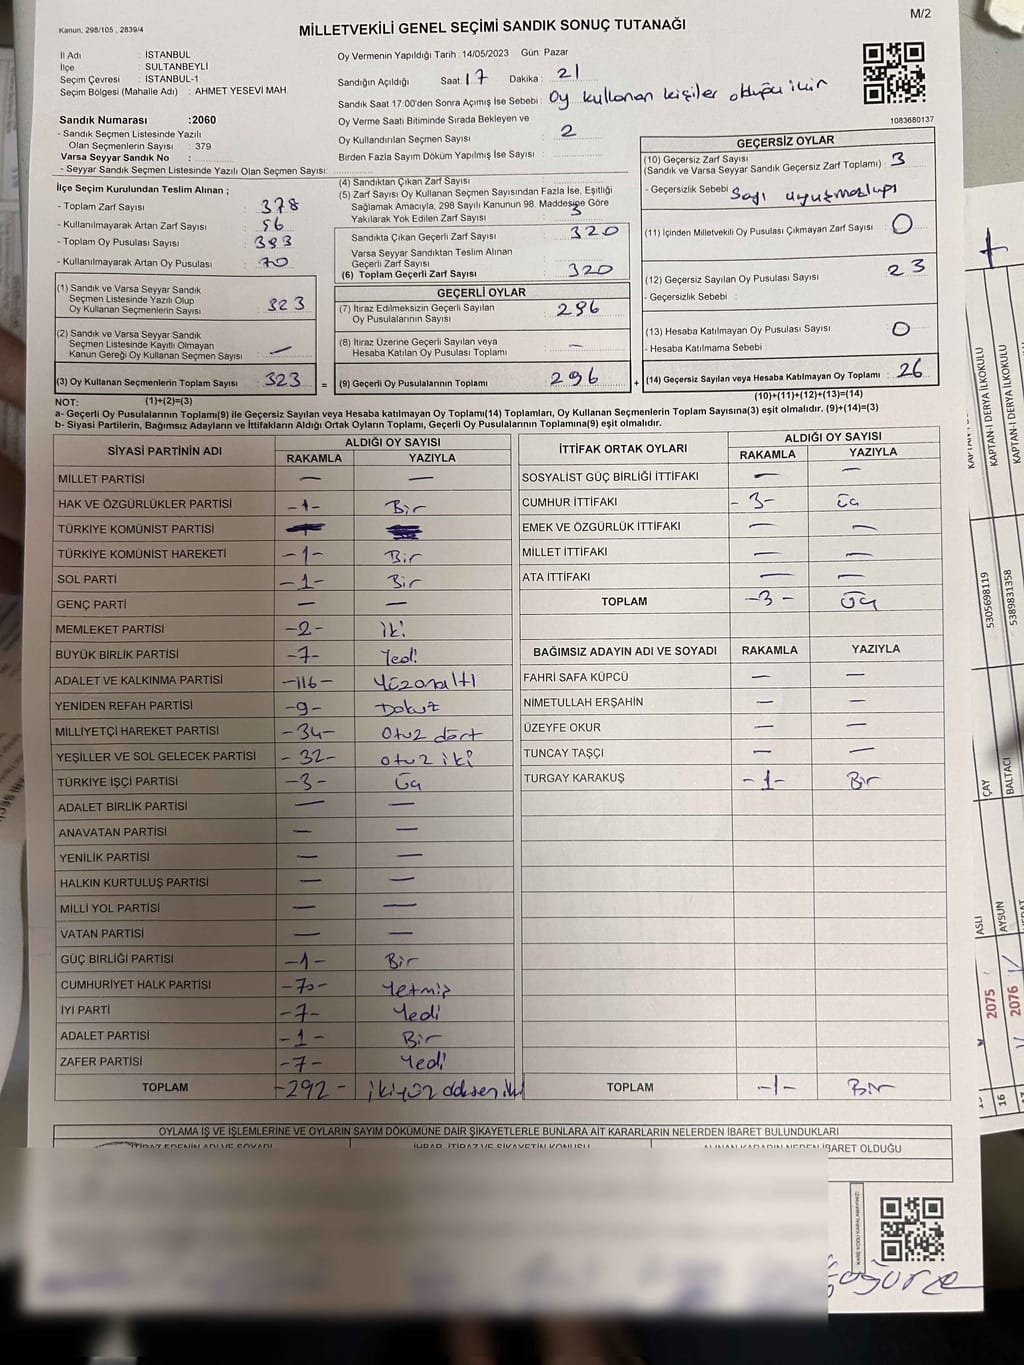 M/2
Kanun: 298/105 , 2839/4
MİLLETVEKİLİ GENEL SEÇİMİ SANDIK SONUÇ TUTANAĞI
İl Adı : İSTANBUL
İlçe : SULTANBEYLİ
Seçim Çevresi : İSTANBUL-1
Seçim Bölgesi (Mahalle Adı) : AHMET YESEVİ MAH.
Oy Vermenin Yapıldığı Tarih : 14/05/2023 Gün: Pazar
Sandığın Açıldığı Saat: 17 Dakika : 21
Sandık Saat 17:00'den Sonra Açımış İse Sebebi : Oy kullanan kişiler olduğu için
Oy Verme Saati Bitiminde Sırada Bekleyen ve
Oy Kullandırılan Seçmen Sayısı : 2
Birden Fazla Sayım Döküm Yapılmış İse Sayısı :
1083680137
Sandık Numarası :2060
- Sandık Seçmen Listesinde Yazılı
Olan Seçmenlerin Sayısı : 379
Varsa Seyyar Sandık No :
- Seyyar Sandık Seçmen Listesinde Yazılı Olan Seçmen Sayısı:
İlçe Seçim Kurulundan Teslim Alınan ;
- Toplam Zarf Sayısı : 378
- Kullanılmayarak Artan Zarf Sayısı : 56
- Toplam Oy Pusulası Sayısı : 393
- Kullanılmayarak Artan Oy Pusulası : 70
(1) Sandık ve Varsa Seyyar Sandık
Seçmen Listesinde Yazılı Olup
Oy Kullanan Seçmenlerin Sayısı : 323
(2) Sandık ve Varsa Seyyar Sandık
Seçmen Listesinde Kayıtlı Olmayan
Kanun Gereği Oy Kullanan Seçmen Sayısı : —
(3) Oy Kullanan Seçmenlerin Toplam Sayısı : 323
(4) Sandıktan Çıkan Zarf Sayısı :
(5) Zarf Sayısı Oy Kullanan Seçmen Sayısından Fazla İse, Eşitliği
Sağlamak Amacıyla, 298 Sayılı Kanunun 98. Maddesine Göre
Yakılarak Yok Edilen Zarf Sayısı : 3
Sandıkta Çıkan Geçerli Zarf Sayısı : 320
Varsa Seyyar Sandıktan Teslim Alınan
Geçerli Zarf Sayısı
(6) Toplam Geçerli Zarf Sayısı : 320
GEÇERLİ OYLAR
(7) İtiraz Edilmeksizin Geçerli Sayılan
Oy Pusulalarının Sayısı : 296
(8) İtiraz Üzerine Geçerli Sayılan veya
Hesaba Katılan Oy Pusulası Toplamı : —
= (9) Geçerli Oy Pusulalarının Toplamı : 296
GEÇERSİZ OYLAR
(10) Geçersiz Zarf Sayısı
(Sandık ve Varsa Seyyar Sandık Geçersiz Zarf Toplamı) : 3
- Geçersizlik Sebebi : Sayı uyuşmazlığı
(11) İçinden Milletvekili Oy Pusulası Çıkmayan Zarf Sayısı : 0
(12) Geçersiz Sayılan Oy Pusulası Sayısı : 23
- Geçersizlik Sebebi :
(13) Hesaba Katılmayan Oy Pusulası Sayısı : 0
- Hesaba Katılmama Sebebi :
+ (14) Geçersiz Sayılan veya Hesaba Katılmayan Oy Toplamı : 26
NOT: (1)+(2)=(3) (10)+(11)+(12)+(13)=(14)
a- Geçerli Oy Pusulalarının Toplamı(9) ile Geçersiz Sayılan veya Hesaba katılmayan Oy Toplamı(14) Toplamları, Oy Kullanan Seçmenlerin Toplam Sayısına(3) eşit olmalıdır. (9)+(14)=(3)
b- Siyasi Partilerin, Bağımsız Adayların ve İttifakların Aldığı Ortak Oyların Toplamı, Geçerli Oy Pusulalarının Toplamına(9) eşit olmalıdır.
SİYASİ PARTİNİN ADI ALDIĞI OY SAYISI
RAKAMLA YAZIYLA
MİLLET PARTİSİ — —
HAK VE ÖZGÜRLÜKLER PARTİSİ -1- Bir
TÜRKİYE KOMÜNİST PARTİSİ
TÜRKİYE KOMÜNİST HAREKETİ -1- Bir
SOL PARTİ -1- Bir
GENÇ PARTİ — —
MEMLEKET PARTİSİ -2- iki
BÜYÜK BİRLİK PARTİSİ -7- Yedi
ADALET VE KALKINMA PARTİSİ -116- Yüzonaltı
YENİDEN REFAH PARTİSİ -9- Dokuz
MİLLİYETÇİ HAREKET PARTİSİ -34- Otuz dört
YEŞİLLER VE SOL GELECEK PARTİSİ -32- otuz iki
TÜRKİYE İŞÇİ PARTİSİ -3- Üç
ADALET BİRLİK PARTİSİ — —
ANAVATAN PARTİSİ — —
YENİLİK PARTİSİ — —
HALKIN KURTULUŞ PARTİSİ — —
MİLLİ YOL PARTİSİ — —
VATAN PARTİSİ — —
GÜÇ BİRLİĞİ PARTİSİ -1- Bir
CUMHURİYET HALK PARTİSİ -70- Yetmiş
İYİ PARTİ -7- Yedi
ADALET PARTİSİ -1- Bir
ZAFER PARTİSİ -7- Yedi
TOPLAM -292- ikiyüz doksen iki
İTTİFAK ORTAK OYLARI ALDIĞI OY SAYISI
RAKAMLA YAZIYLA
SOSYALİST GÜÇ BİRLİĞİ İTTİFAKI — —
CUMHUR İTTİFAKI -3- Üç
EMEK VE ÖZGÜRLÜK İTTİFAKI — —
MİLLET İTTİFAKI — —
ATA İTTİFAKI — —
TOPLAM -3- Üç
BAĞIMSIZ ADAYIN ADI VE SOYADI RAKAMLA YAZIYLA
FAHRİ SAFA KÜPCÜ — —
NİMETULLAH ERŞAHİN — —
ÜZEYFE OKUR — —
TUNCAY TAŞÇI — —
TURGAY KARAKUŞ -1- Bir
TOPLAM -1- Bir
OYLAMA İŞ VE İŞLEMLERİNE VE OYLARIN SAYIM DÖKÜMÜNE DAİR ŞİKAYETLERLE BUNLARA AİT KARARLARIN NELERDEN İBARET BULUNDUKLARI
İTİRAZ EDENİN ADI VE SOYADI İHBAR, İTİRAZ VE ŞİKAYETİN KONUSU ALINAN KARARIN NEDEN İBARET OLDUĞU
KAPTAN-I DERYA İLKOKULU
KAPTAN-I DERYA İLKOKULU
5305698119
5389831358
ÇAY
BALTACI
ASLI
AYSUN
2075
2076
16